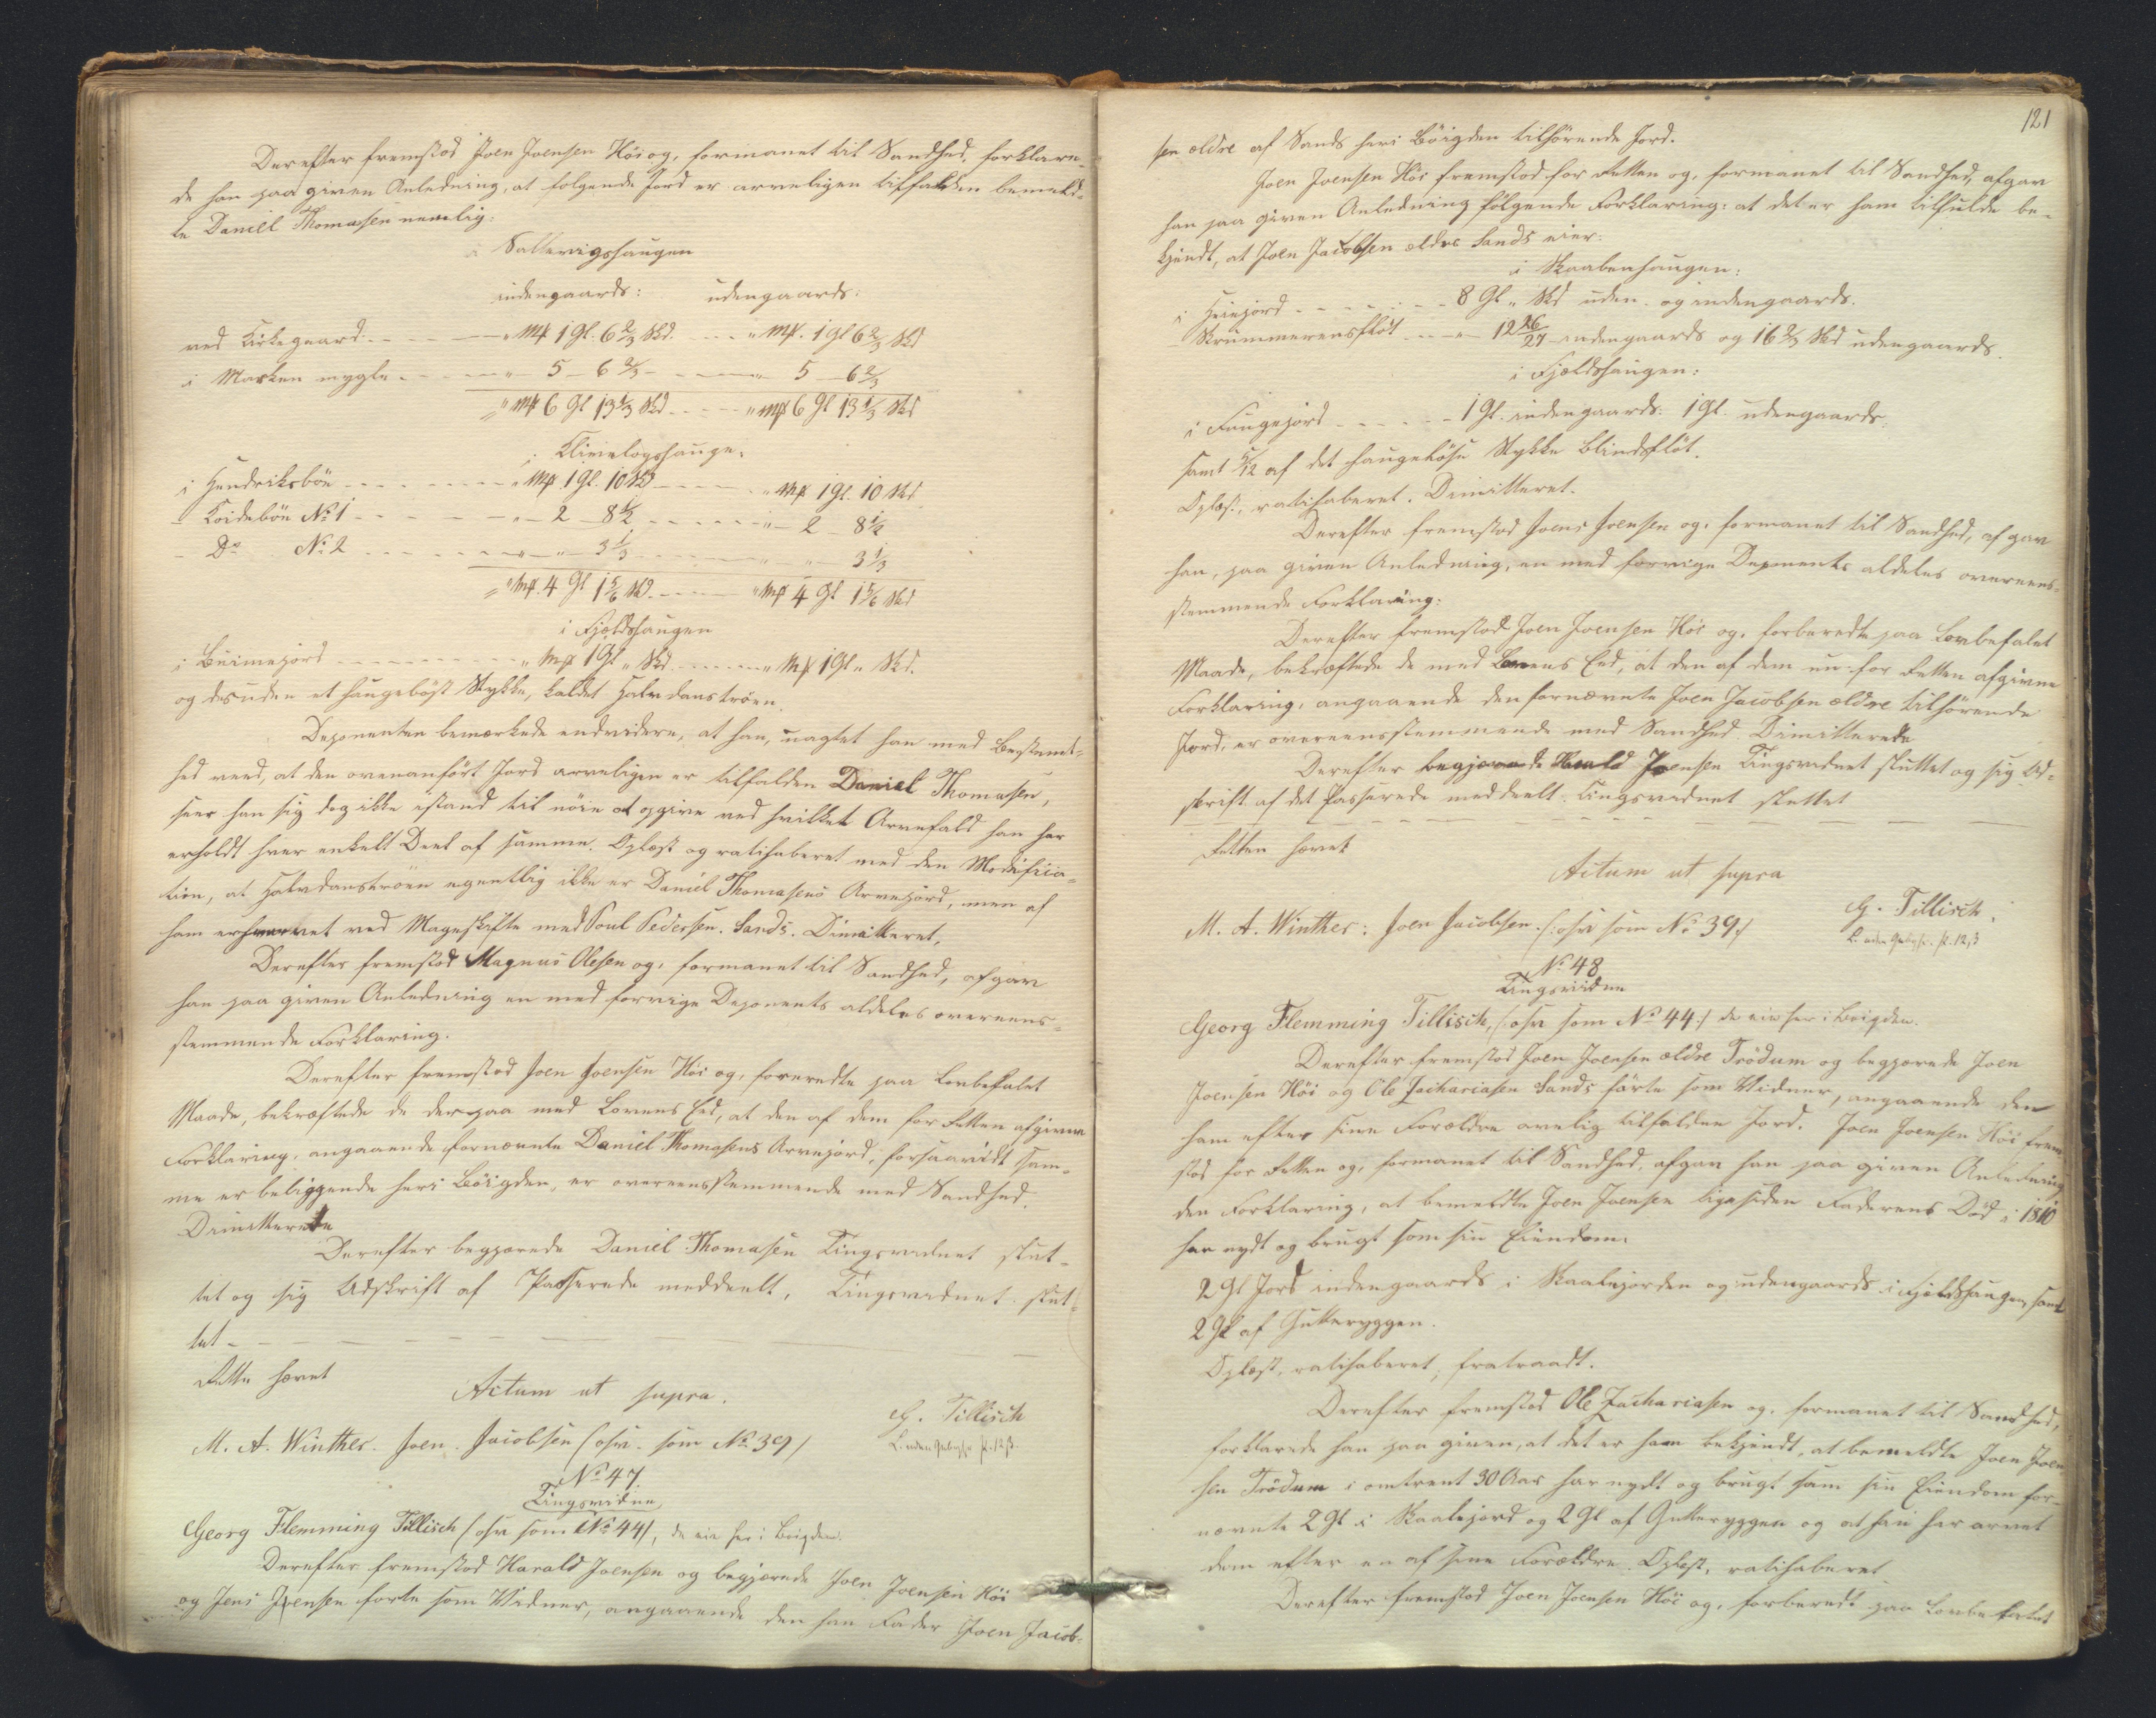 Derefter fremstod Joen Joensen Höi og, formanet til Sandhed, forklare-
de han paa given Anledning, at følgende Jord er arveligen tilfalden bemeld-
te Daniel Thomasen nemlig:
i Saltevigshaugen
indengaards: udengaards:
ved Kirkegaard - - - " Mk 1 Gl. 6 2/3 Skd. - - - " Mk. 1 Gl 6 2/3 Skd
i Marken - - - " 5 - 6 2/3 - - - " 5 - 6 2/3
= " Mk 6 Gl 13 1/3 Skd - - - " Mk 6 Gl 13 1/3 Skd
i
i Hendriksböe - - - " Mk. 1 Gl. 10 Skd - - - " Mk 1 Gl. 10 Skd
- Koidebön No 1 - - - " - 2 - 8 1/2 - - - " - 2 - 8 1/2
- Do No 2 - - - " - " - 3 1/3 - - - " - " - 3 1/3
= " Mk. 4 Gl 1 5/6 Skd. - - - " Mk 4 Gl 1 5/6 Skd
i Fjeldshaugen
i - - - " Mk 1 Gl " Skd - - - " Mk 1 Gl " Skd.
og desuden et haugeböst Stykke, kaldet Halvdanströen.
Deponenten bemærkede endvidere, at han, uagtet han med Bestemt-
hed veed, at den ovenanført Jord arveligen er tilfalden Daniel Thomasen,
seer han sig dog ikke istand til nöie at opgive ved hvilket Arvefald han har
erholdt hver enkelt Deel af samme. Oplæst og ratihaberet med den Modifica-
tion, at Halvdanströen egentlig ikke er Daniel Thomasens Arvejord, men af
ham erhvervet ved Mageskifte med Poul Pedersen. Sands. Dimitteret.
Derefter fremstod Magnus Olesen og, formanet til Sandhed, afgav
han paa given Anledning en med forrige Deponents aldeles overeens-
stemmende Forklaring.
Derefter fremstod Joen Joensen Höi og, foreredte paa Lovbefalet
Maade, bekræftede de derpaa med Lovens Eed, at den af dem for Retten afgivne
Forklaring, angaaende fornævnte Daniel Thomasens Arvejord, forsaavidt sam-
me er beliggende heri Böigden, er overeensstemmende med Sandhed.
Dimitterede
Derefter begjærede Daniel Thomasen Tingsvidnet slut-
tet og sig Udskrift af Passerede meddeelt. Tingsvidnet slut-
tet -
Retten hævet
Actum ut supra.
G. Tillisch
M. A. Winther. Joen Jacobsen (: osv. som No 39)
No 47
Tingsvidne
Georg Flemming Tillisch (: osv som No 44), de eie her i Böigden.
Derefter fremstod Harald Joensen og begjærede Joen Joensen Höi
og Jens Joensen førte som Vidner, angaaende den han Fader Joen Jacob-
121
sen ældre af Sands heri Böigden tilhörende Jord.
Joen Joensen Höi fremstod for Retten og, formanet til Sandhed, afgav
han paa given Anledning følgende Forklaring: at det er ham tilfulde be-
kjendt, at Joen Jacobsen ældre Sands eier:
i Skaabenhaugen:
i Heiejord - - - 8 Gl " Skd uden- og indengaards.
- Krummerensflöt - - - " - 12 26/27 indengaards og 16 2/3 Skd udengaards.
i Fjeldshaugen:
i Faugejord - - - 1 Gl. indengaards: 1 Gl. udengaards.
samt 5/12 af det haugebösse Stykke Blindsflöt.
Oplæst, ratihaberet. Dimitteret.
Derefter fremstod Joens Joensen og, formanet til Sandhed, afgav
han, paa given Anledning, en med forrige Deponents aldeles overeens-
stemmende Forklaring.
Derefter fremstod Joen Joensen Höi og, forberedte paa Lovbefalet
Maade, bekræftede de med Lovens Eed, at den af dem nu for Retten afgivne
Forklaring, angaaende den fornævnte Joen Jacobsen ældre tilhörende
Jord, er overeensstemmende med Sandhed. Dimitterede
Derefter begjærede Harald Joensen Tingsvidnet sluttet og sig Ud-
skrift af det Passerede meddeelt. Tingsvidnet sluttet
Retten hævet
Actum ut supra
G. Tillisch
M. A. Winther: Joen Jacobsen. (: osv som No 39)
No 48
Tingsvidne
Georg Flemming Tillisch, (: osv som No 44:) de eie her i Böigden.
Derefter fremstod Joen Joensen ældre Trödum og begjærede Joen
Joensen Höi og Ole Zachariasen Sands førte som Vidner, angaaende den
ham efter sine Forældre arvelig tilfalden Jord. Joen Joensen Höi frem-
stod for Retten og, formanet til Sandhed, afgav han paa given Anledning
den Forklaring, at bemeldte Joen Joensen ligesiden Faderens Död i 1810
har nydt og brugt som sin Eiendom:
2 Gl Jord indengaards i Skaalejorden og udengaards i Fjeldshaugen, samt
2 Gl af Gutteryggen.
Oplæst, ratihaberet, fratraadt.
Derefter fremstod Ole Zachariasen og, formanet til Sandhed,
forklarede han paa given, at det er ham bekjendt, at bemeldte Joen Joen-
sen Trödum i omtrent 30 Aar har nydt og brugt som sin Eiendom for-
nævnte 2 Gl i Skaalejord og 2 Gl af Gutteryggen og at han har arvet
dem efter en af sine Forældre. Oplæst, ratihaberet
Derefter fremstod Joen Joensen Höi og, forberedt paa Lovbefalet